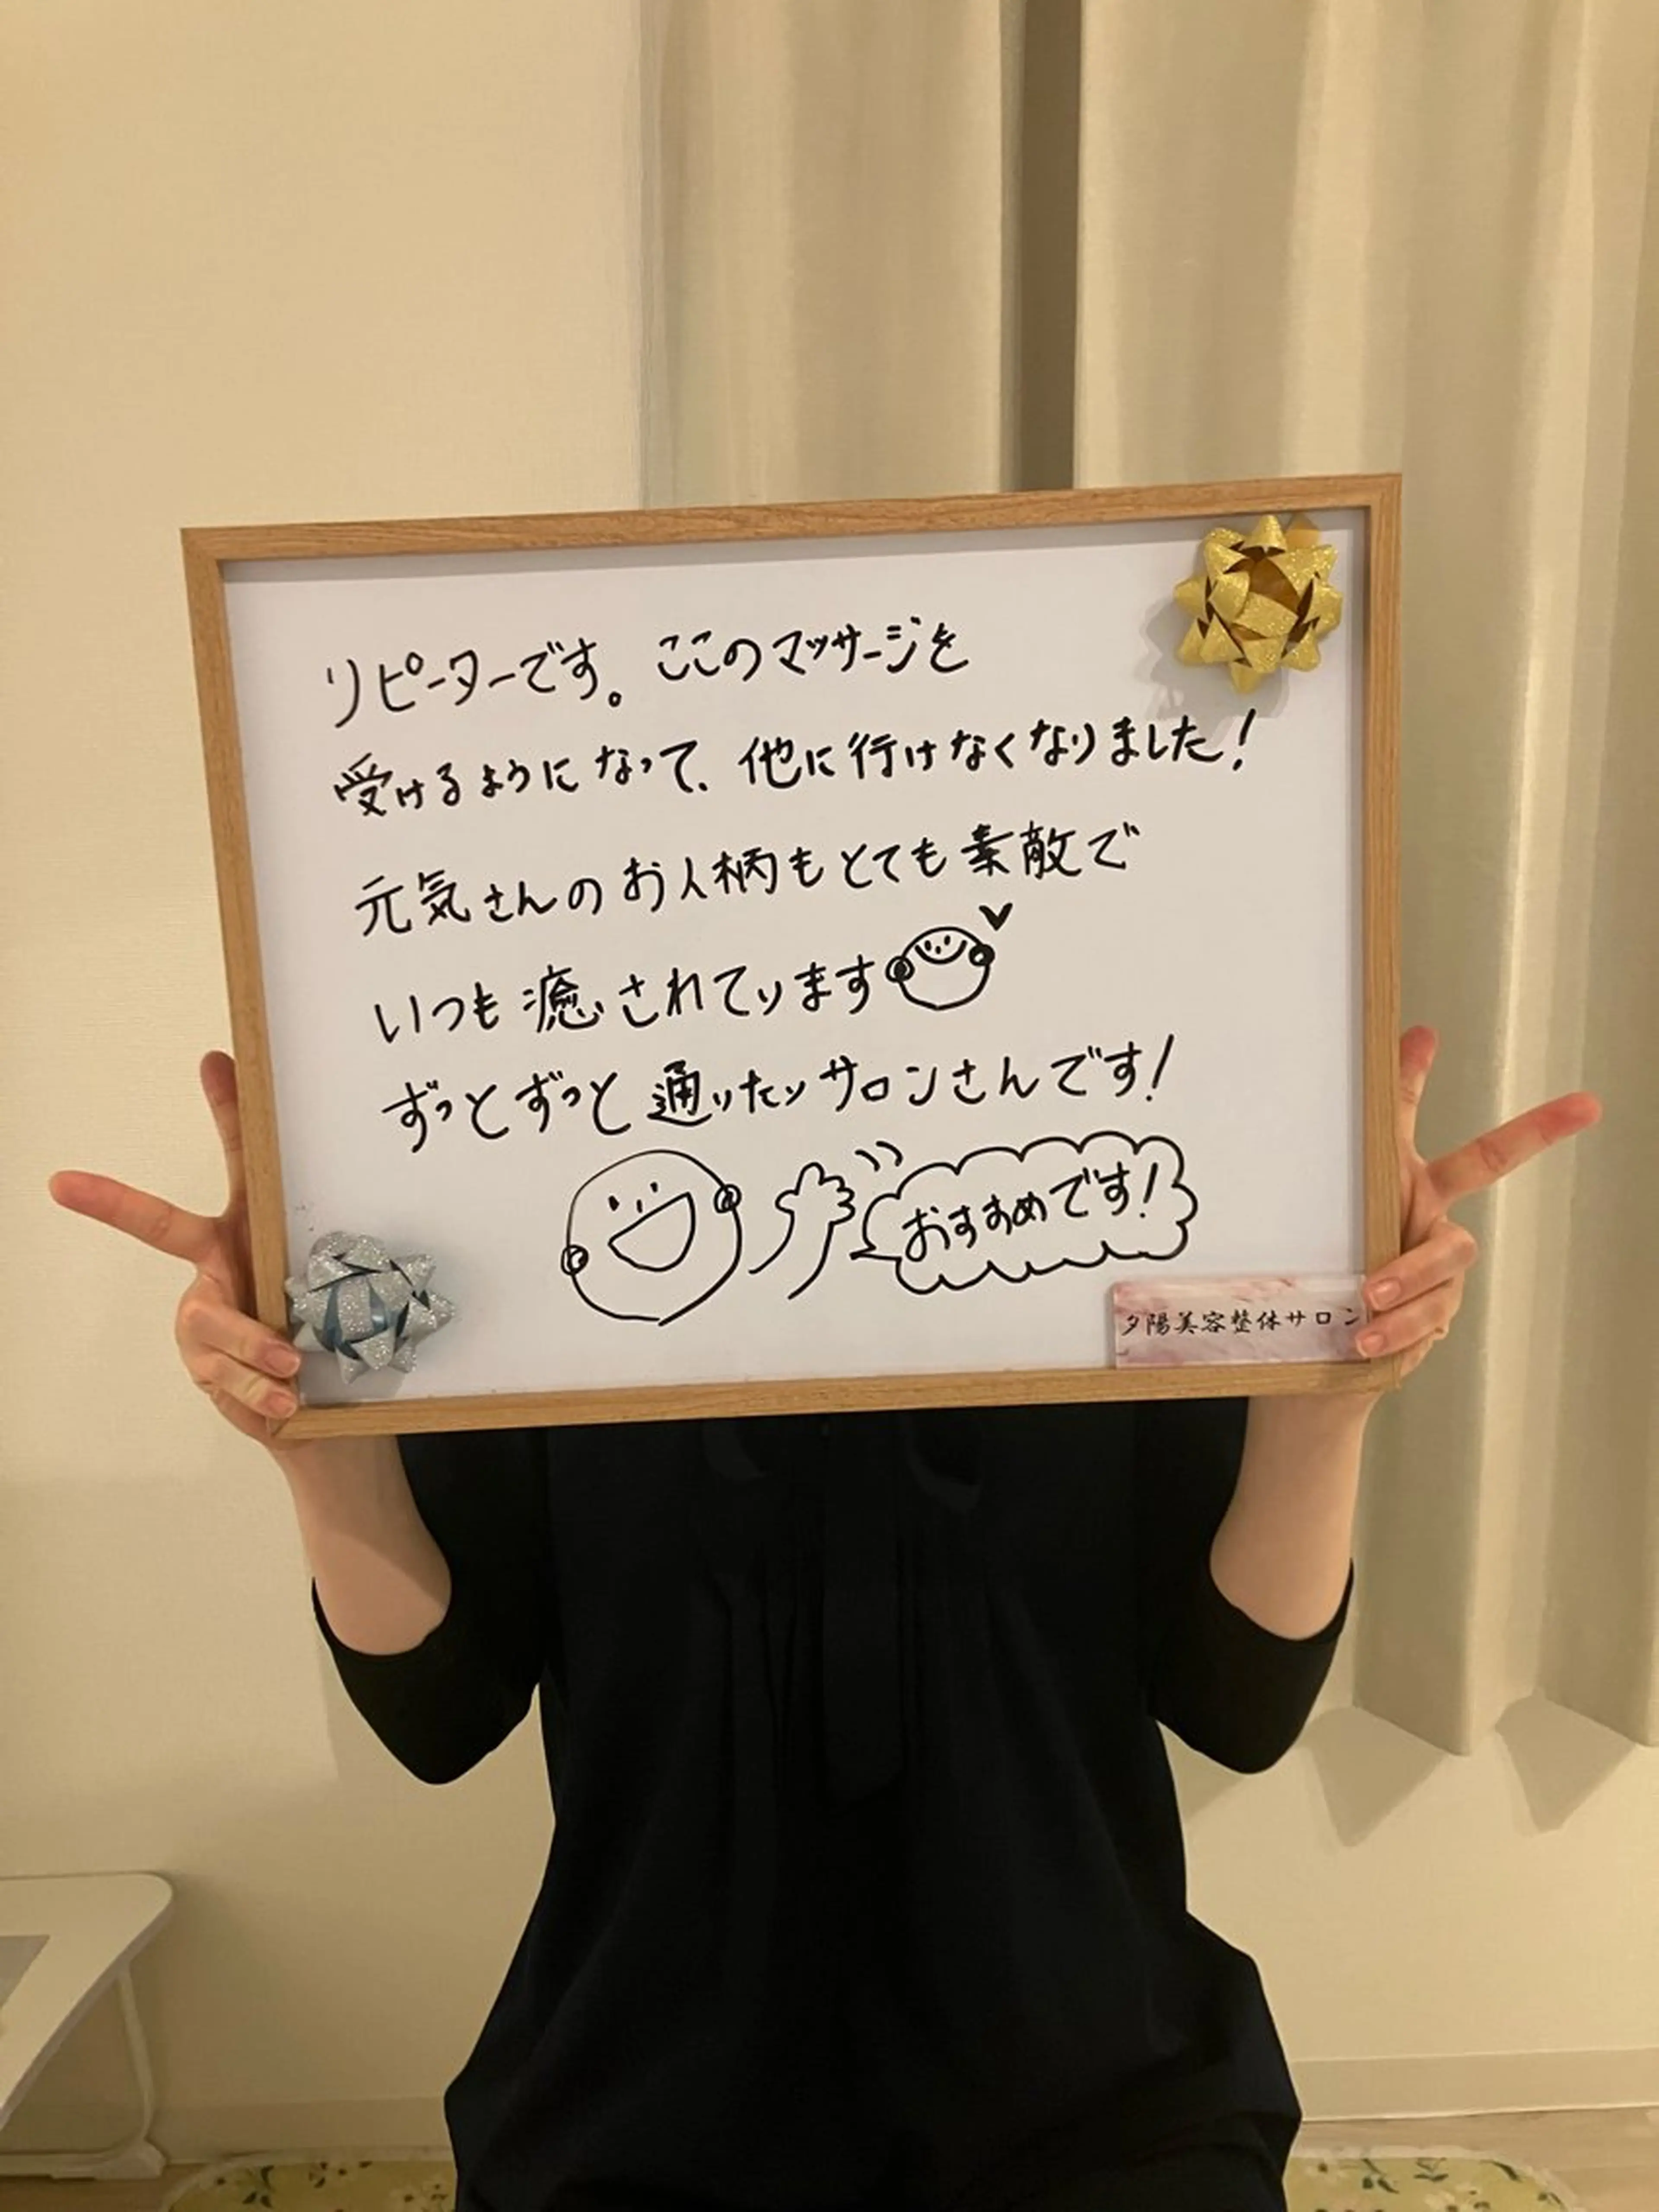 リピーターです。ここのマッサージを
受けるようになって、他に行けなくなりました!
元気さんのお人柄もとても素敵で
いつも癒されています
ずっとずっと通いたいサロンさんです!
おすすめです!
夕陽美容整体サロン